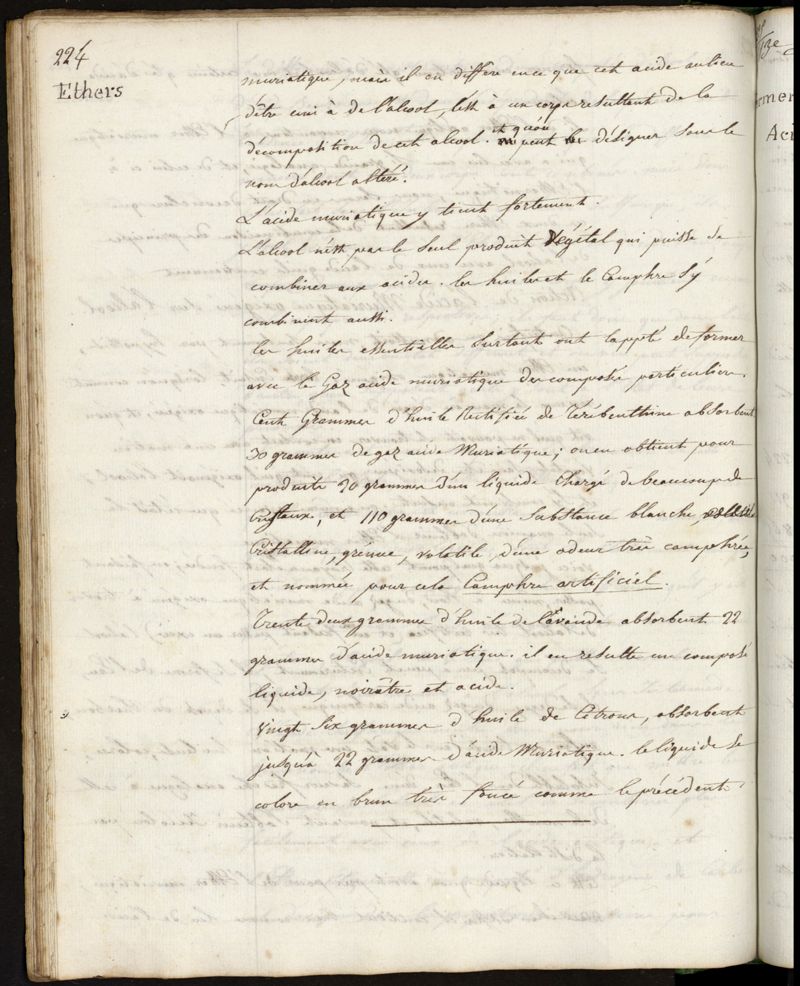 224
Ethers
muriatique, mais il en differe en ce que cet acide au lieu
d'être uni à de l'alcool, l'est à un corps resultant de la
décomposition de cet alcool. et qu'on peut désigner sous le
nom d'alcool altéré.
L'acide muriatique y tient fortement.
L'alcool n'est pas le seul produit Végétal qui puisse se
combiner aux acides. les huiles et le Camphre s'y
combinent aussi.
les huiles essentielles surtout ont la ppté de former
avec le Gaz acide muriatique des composés particuliers.
Cent Grammes d'huile Rectifiée de Térébenthine absorbent
30 grammes de gaz acide Muriatique; on en obtient pour
produits 20 grammes d'un liquide Chargé de beaucoup de
Cristaux, et 110 grammes d'une Substance blanche,
Cristalline, grénue, volatile d'une odeur très camphrée,
et nommée pour cela Camphre artificiel.
Trente deux grammes d'huile de lavande absorbent 22
grammes d'acide muriatique. il en resulte un composé
liquide, noirâtre et acide.
Vingt Six grammes d'huile de Citrons, absorbent
jusqu'à 22 grammes d'acide Muriatique. le liquide se
colore en brun très foncé comme le précédent.